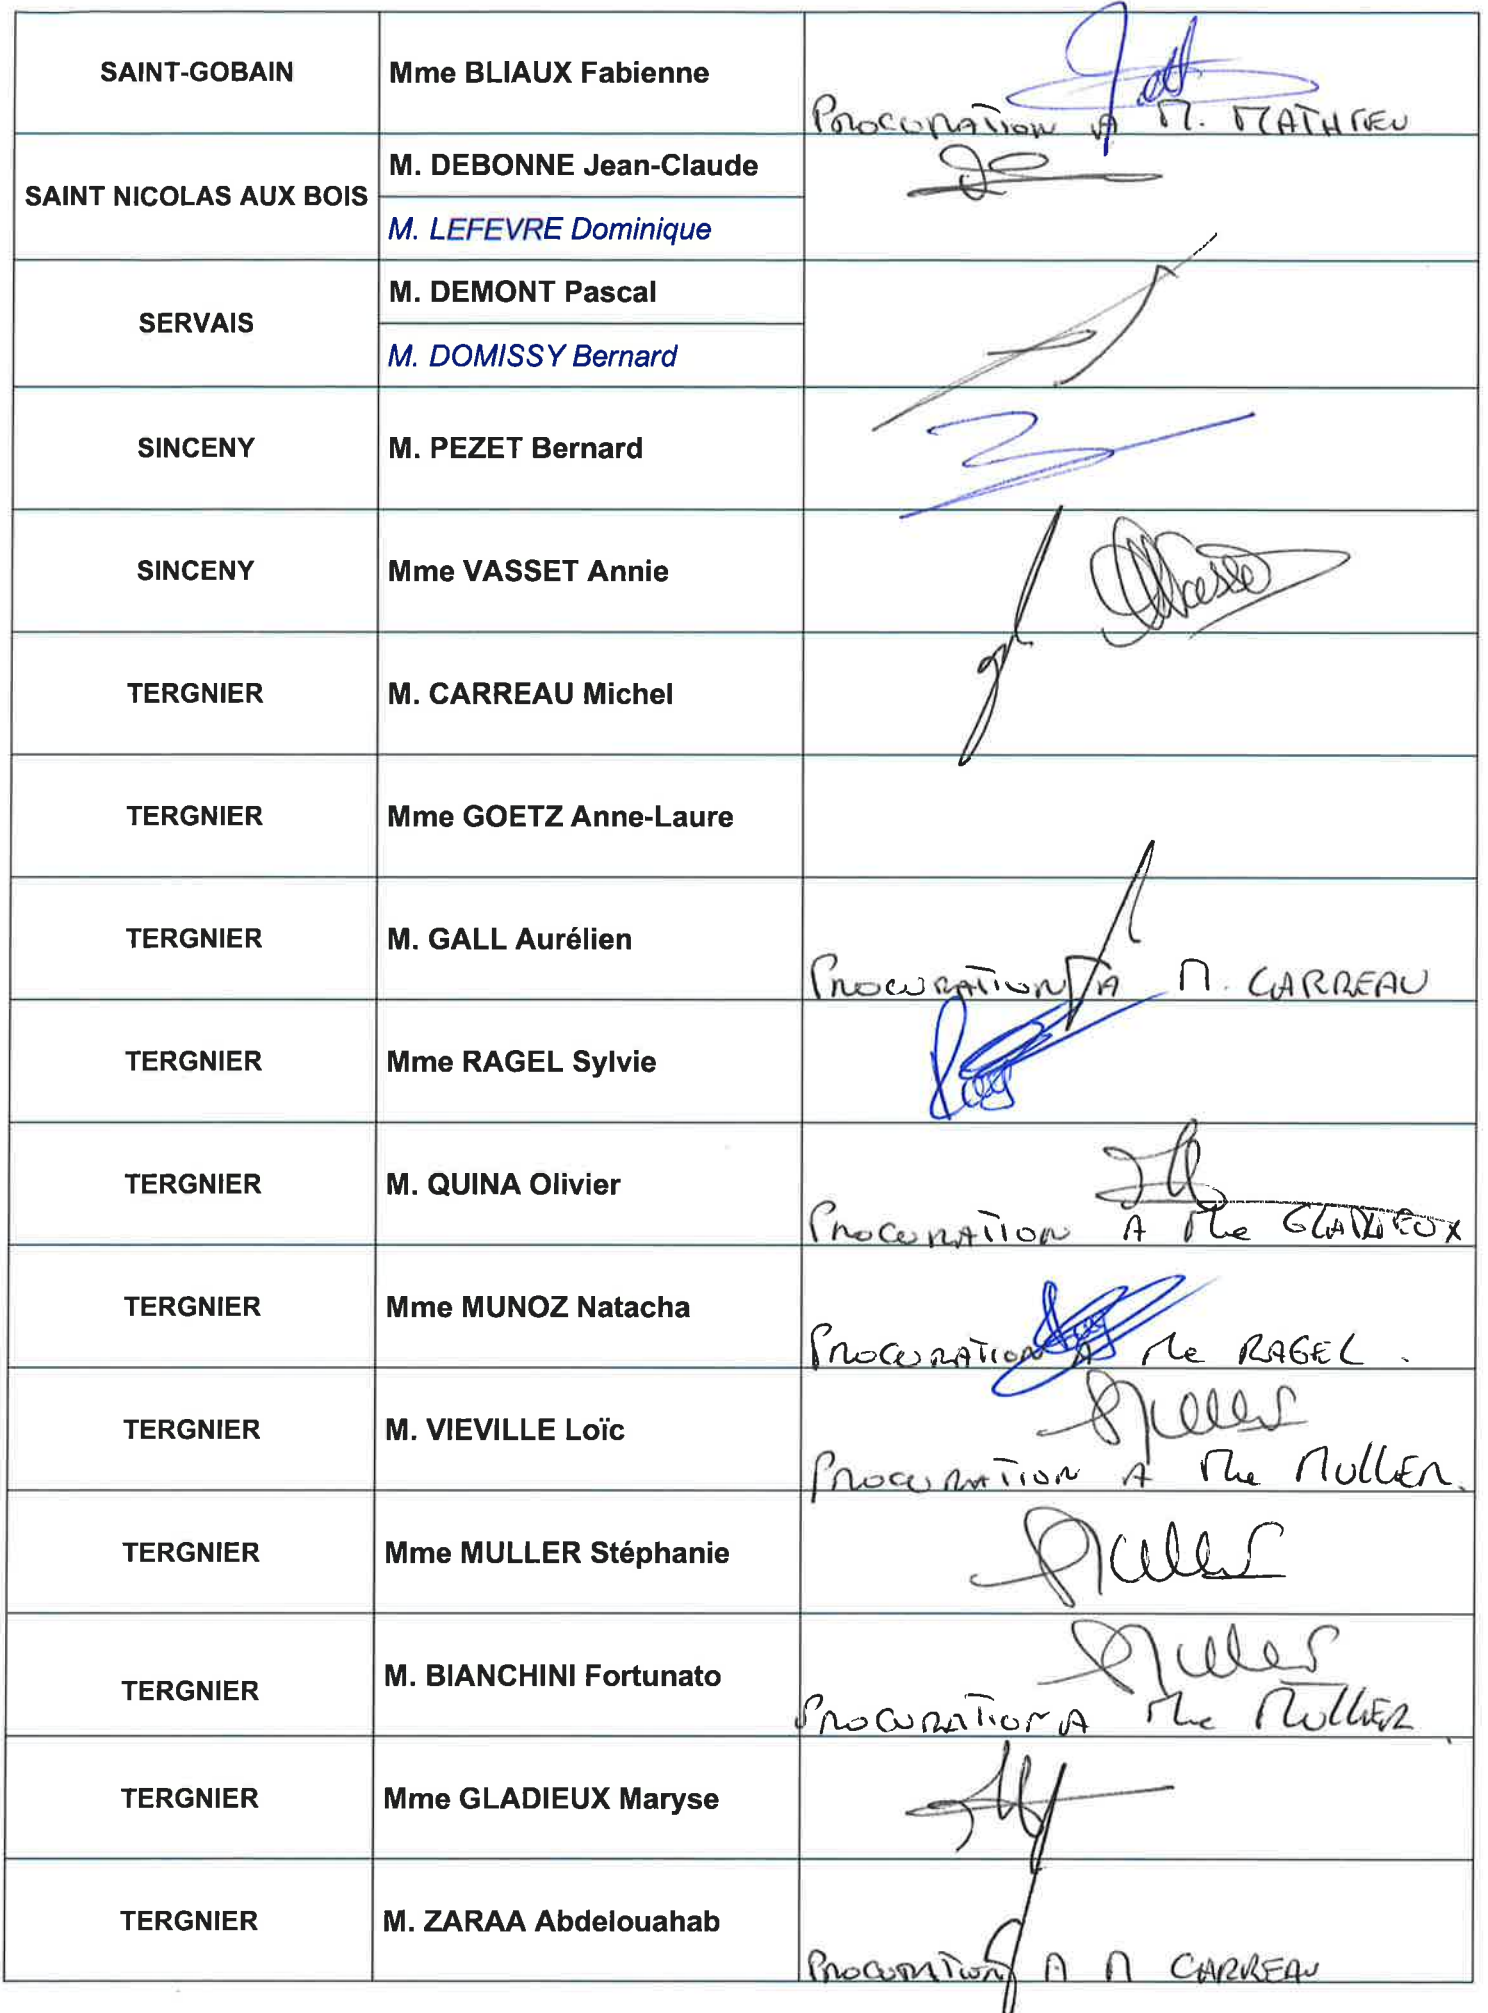 SAINT-GOBAIN Mme BLIAUX Fabienne
PROCURATION A M. MATHIEU
SAINT NICOLAS AUX BOIS M. DEBONNE Jean-Claude
M. LEFEVRE Dominique
SERVAIS M. DEMONT Pascal
M. DOMISSY Bernard
SINCENY M. PEZET Bernard
SINCENY Mme VASSET Annie
TERGNIER M. CARREAU Michel
TERGNIER Mme GOETZ Anne-Laure
TERGNIER M. GALL Aurélien
PROCURATION A M. CARREAU
TERGNIER Mme RAGEL Sylvie
TERGNIER M. QUINA Olivier
PROCURATION A Me GLADIEUX
TERGNIER Mme MUNOZ Natacha
PROCURATION A Me RAGEL.
TERGNIER M. VIEVILLE Loïc
Muller
PROCURATION A Me MULLER.
TERGNIER Mme MULLER Stéphanie
Muller
TERGNIER M. BIANCHINI Fortunato
Muller
PROCURATION A Me MULLER
TERGNIER Mme GLADIEUX Maryse
TERGNIER M. ZARAA Abdelouahab
PROCURATION A M CARREAU